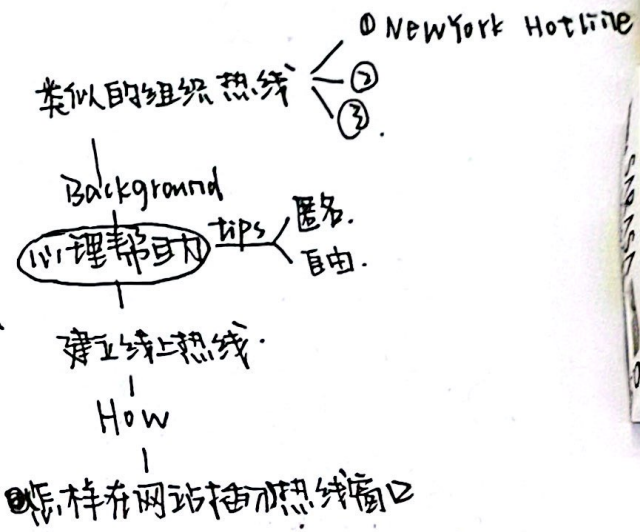 ① NewYork Hotline
类似的组织热线
②
③.
Background
心理帮助
tips
匿名.
自由.
建立线上热线.
How
怎样在网站插入热线窗口